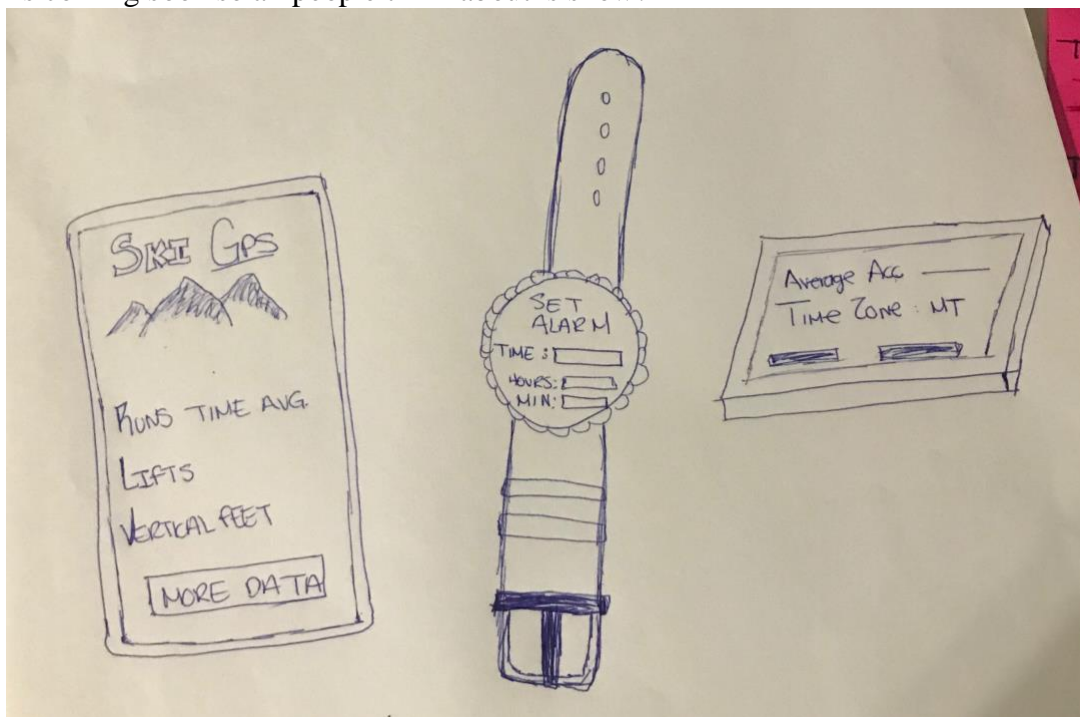 SKI GPS
RUNS TIME AVG.
LIFTS
VERTICAL FEET
MORE DATA
SET
ALARM
TIME:
HOURS:
MIN:
Average Acc
TIME ZONE: MT